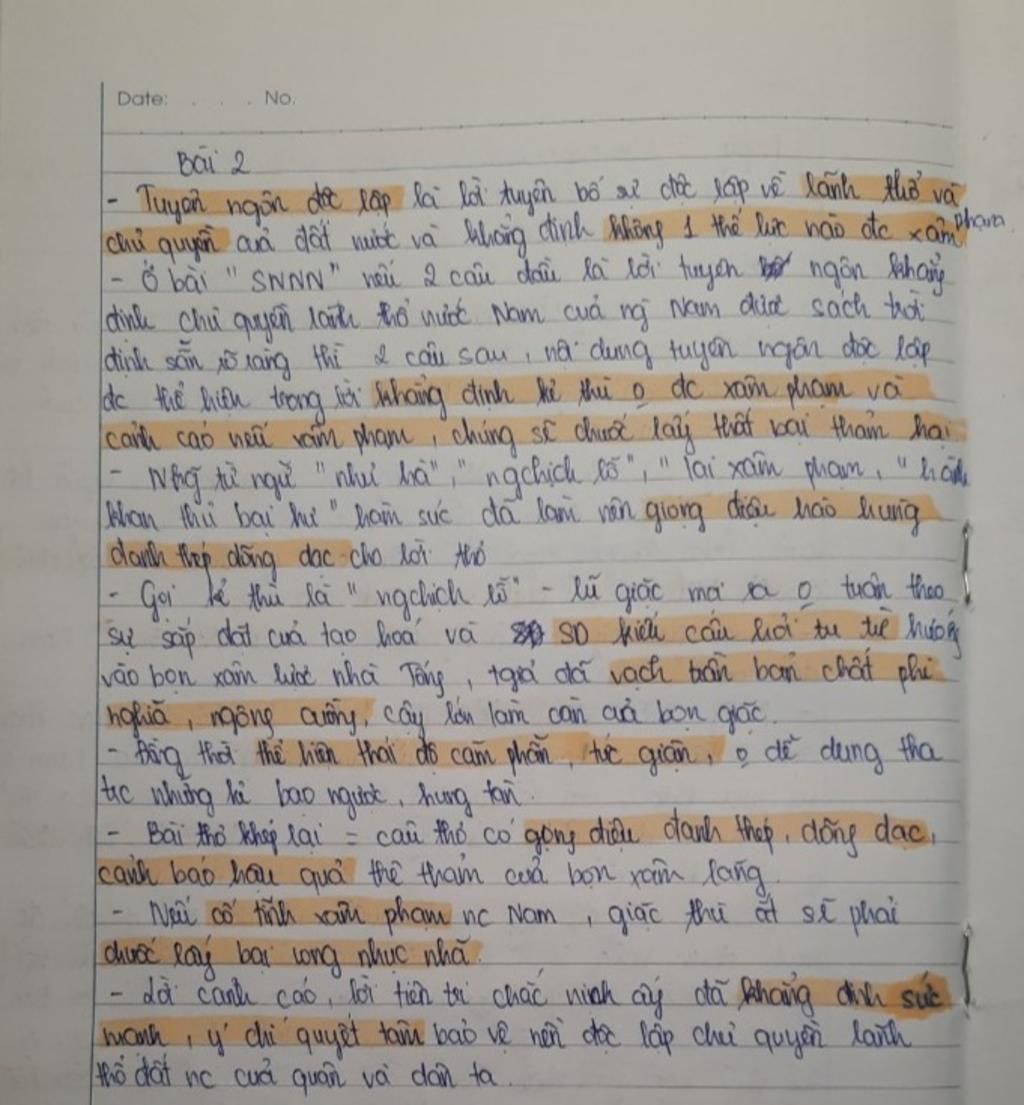 Date: . . . No.
Bài 2
- Tuyên ngôn độc lập là lời tuyên bố sự độc lập về lãnh thổ và
chủ quyền của đất nước và khẳng định không 1 thế lực nào đc xâm phạm
- Ở bài "SNNN" nếu 2 câu đầu là lời tuyên ngôn khẳng
định chủ quyền lãnh thổ nước Nam của ng Nam được sách trời
định sẵn rõ ràng thì 2 câu sau, nội dung tuyên ngôn độc lập
đc thể hiện trong lời khẳng định kẻ thù o đc xâm phạm và
cảnh cáo nếu xâm phạm, chúng sẽ chuốc lấy thất bại thảm hại
- Nhg từ ngữ "như hà", "nghịch lỗ", "lai xâm phạm, "hành
khan thủ bại hư" hàm súc đã làm nên giọng điệu hào hùng
đanh thép dõng dạc cho lời thơ
- Gọi kẻ thù là "nghịch lỗ" - lũ giặc mọi rợ o tuân theo
sự sắp đặt của tạo hoá và SD kiểu câu hỏi tu từ hướng
vào bọn xâm lược nhà Tống, tgiả đã vạch trần bản chất phi
nghĩa, ngông cuồng, cậy lớn làm càn của bọn giặc.
- Đồng thời thể hiện thái độ căm phẫn, tức giận, o dễ dung tha
trc những kẻ bạo ngược, hung tàn.
- Bài thơ khép lại = câu thơ có gọng điệu đanh thép, dõng dạc,
cảnh báo hậu quả thê thảm của bọn xâm lăng.
- Nếu cố tình xâm phạm nc Nam, giặc thù ắt sẽ phải
chuốc lấy bại vong nhục nhã.
- Lời cảnh cáo, lời tiên tri chắc nịnh ấy đã khẳng định sức
mạnh, ý chí quyết tâm bảo vệ nền độc lập chủ quyền lãnh
thổ đất nc của quân và dân ta.